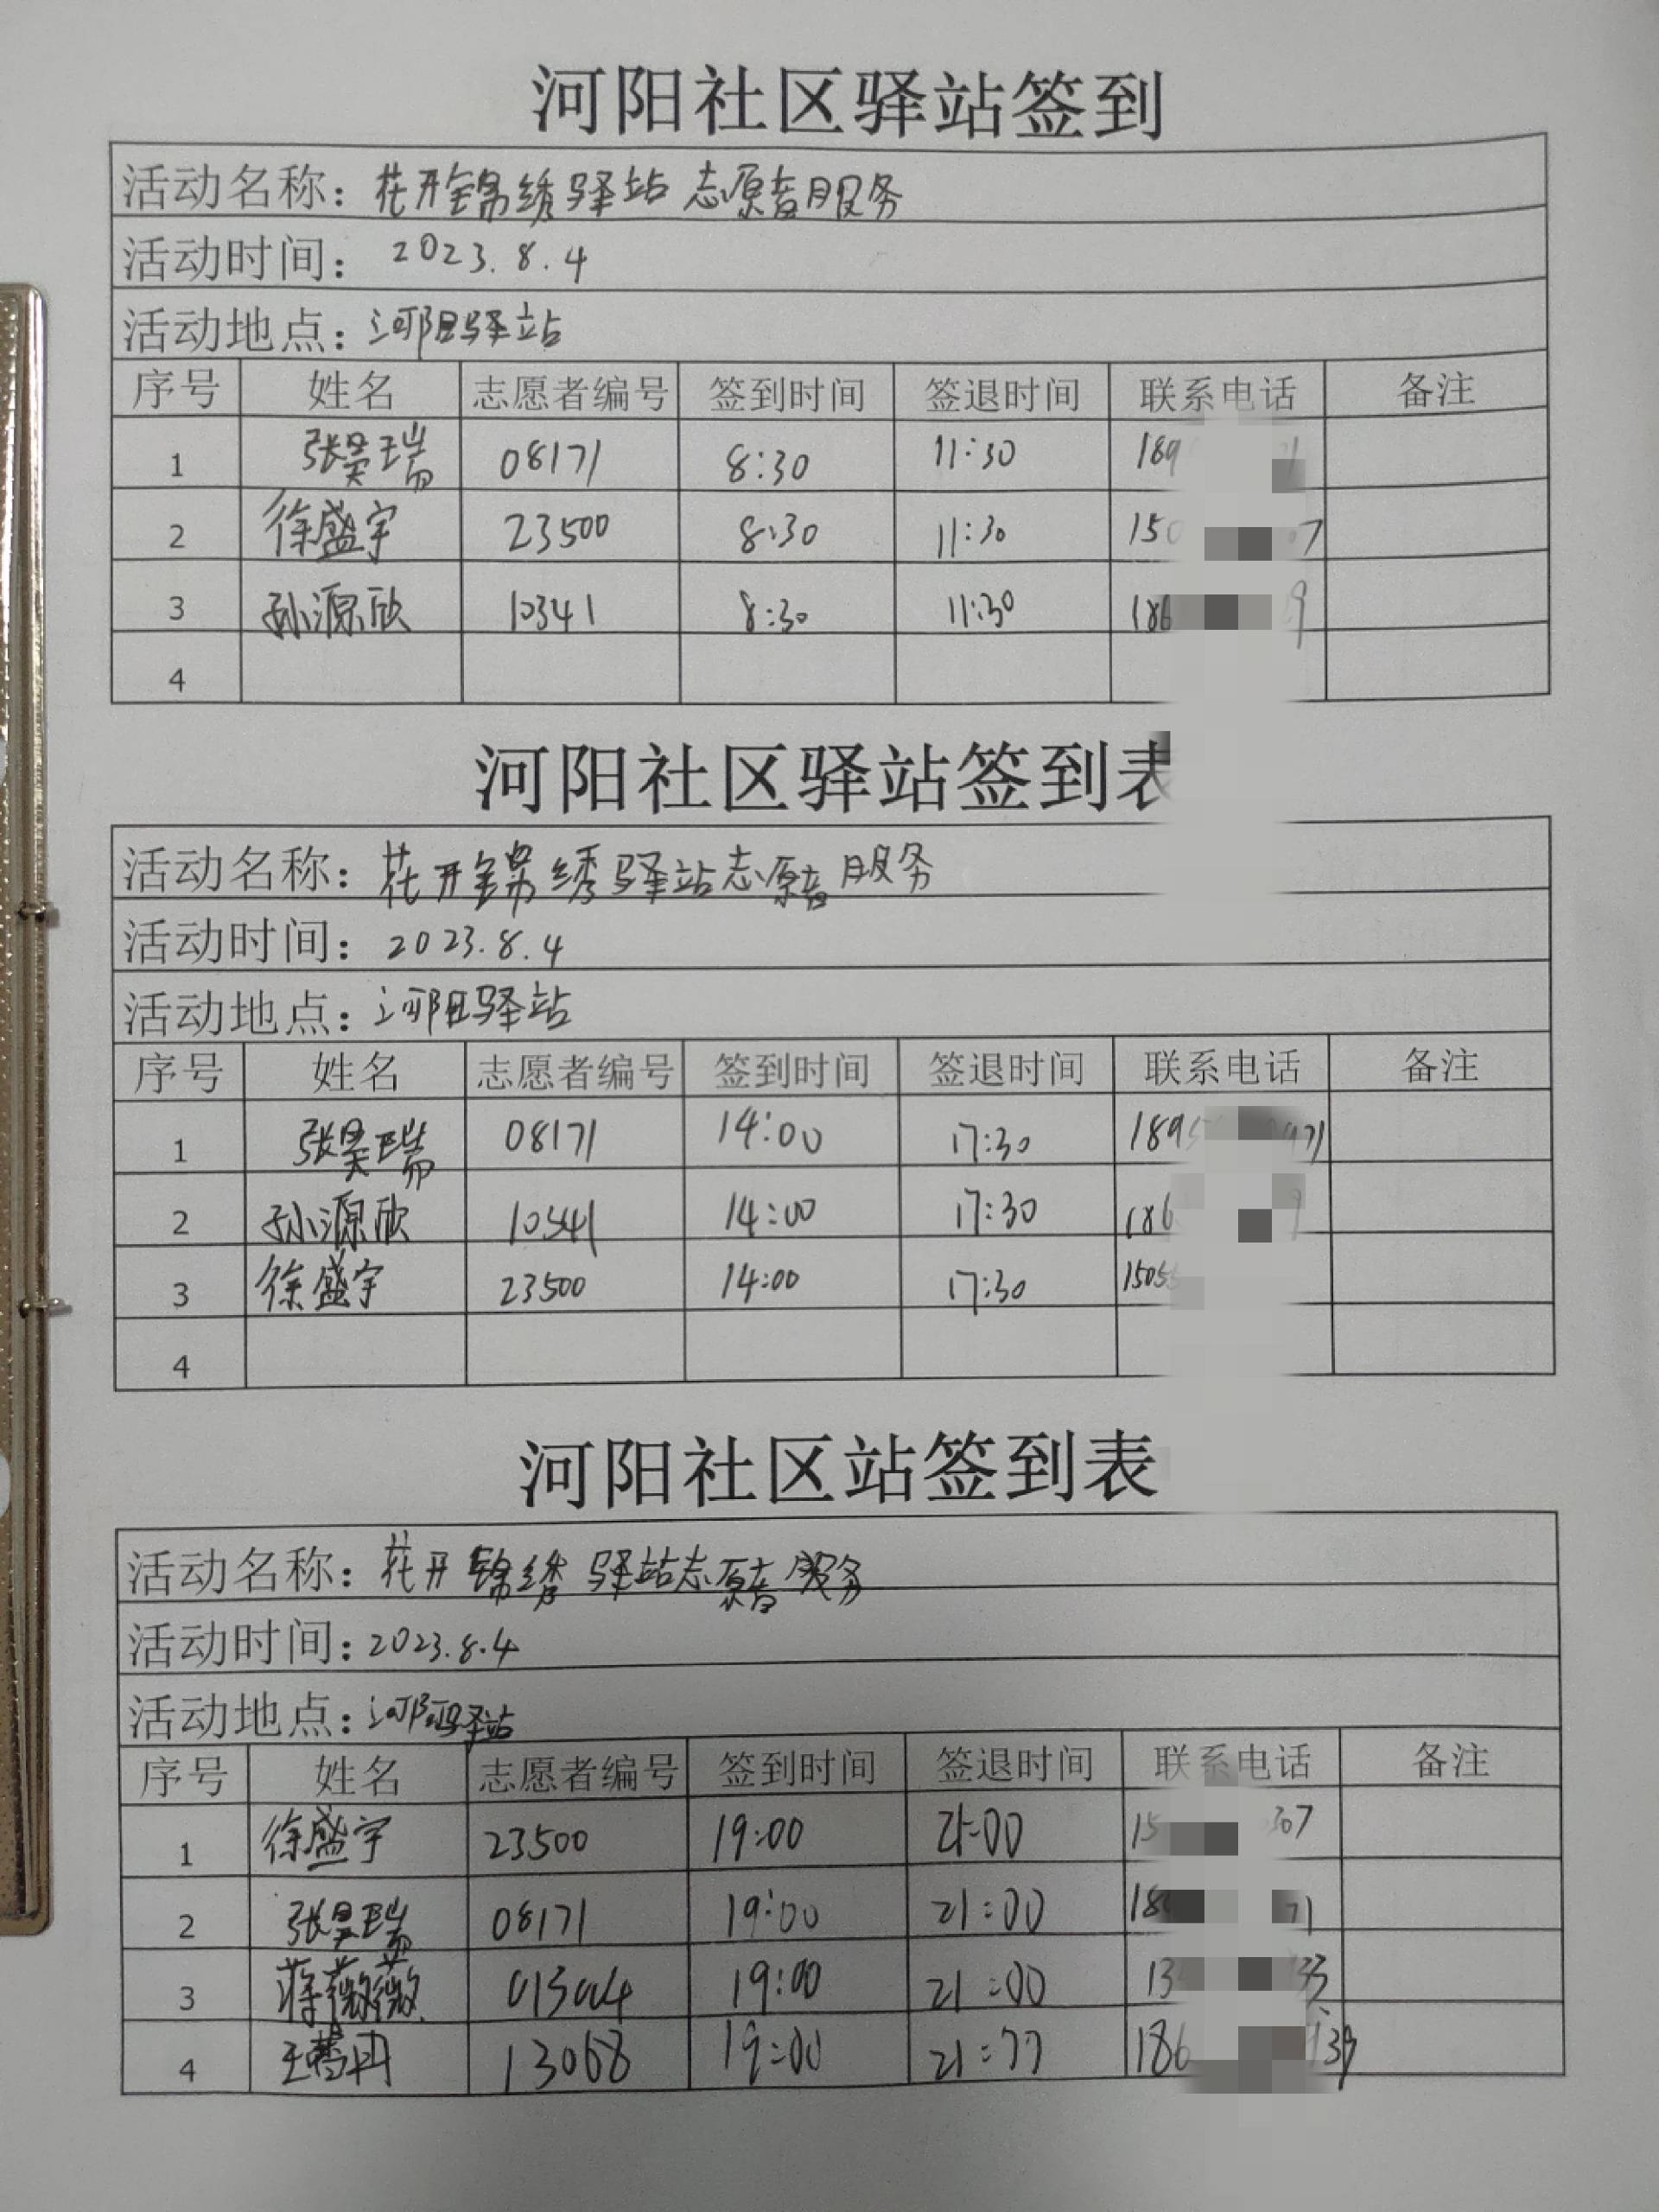 河阳社区驿站签到
活动名称：花开锦绣驿站志原者服务
活动时间：2023.8.4
活动地点：河阳驿站
序号 姓名 志愿者编号 签到时间 签退时间 联系电话 备注
1 张昊瑞 08171 8:30 11:30 189 71
2 徐盛宇 23500 8:30 11:30 150 07
3 孙源欣 10341 8:30 11:30 186 9
4
河阳社区驿站签到表
活动名称：花开锦绣驿站志原者服务
活动时间：2023.8.4
活动地点：河阳驿站
序号 姓名 志愿者编号 签到时间 签退时间 联系电话 备注
1 张昊瑞 08171 14:00 17:30 1895 971
2 孙源欣 10341 14:00 17:30 186 9
3 徐盛宇 23500 14:00 17:30 1505
4
河阳社区站签到表
活动名称：花开锦绣驿站志原者服务
活动时间：2023.8.4
活动地点：河阳驿站
序号 姓名 志愿者编号 签到时间 签退时间 联系电话 备注
1 徐盛宇 23500 19:00 21:00 15 307
2 张昊瑞 08171 19:00 21:00 189 71
3 蒋薇薇 19:00 21:00 13 33
4 13068 19:00 186 39